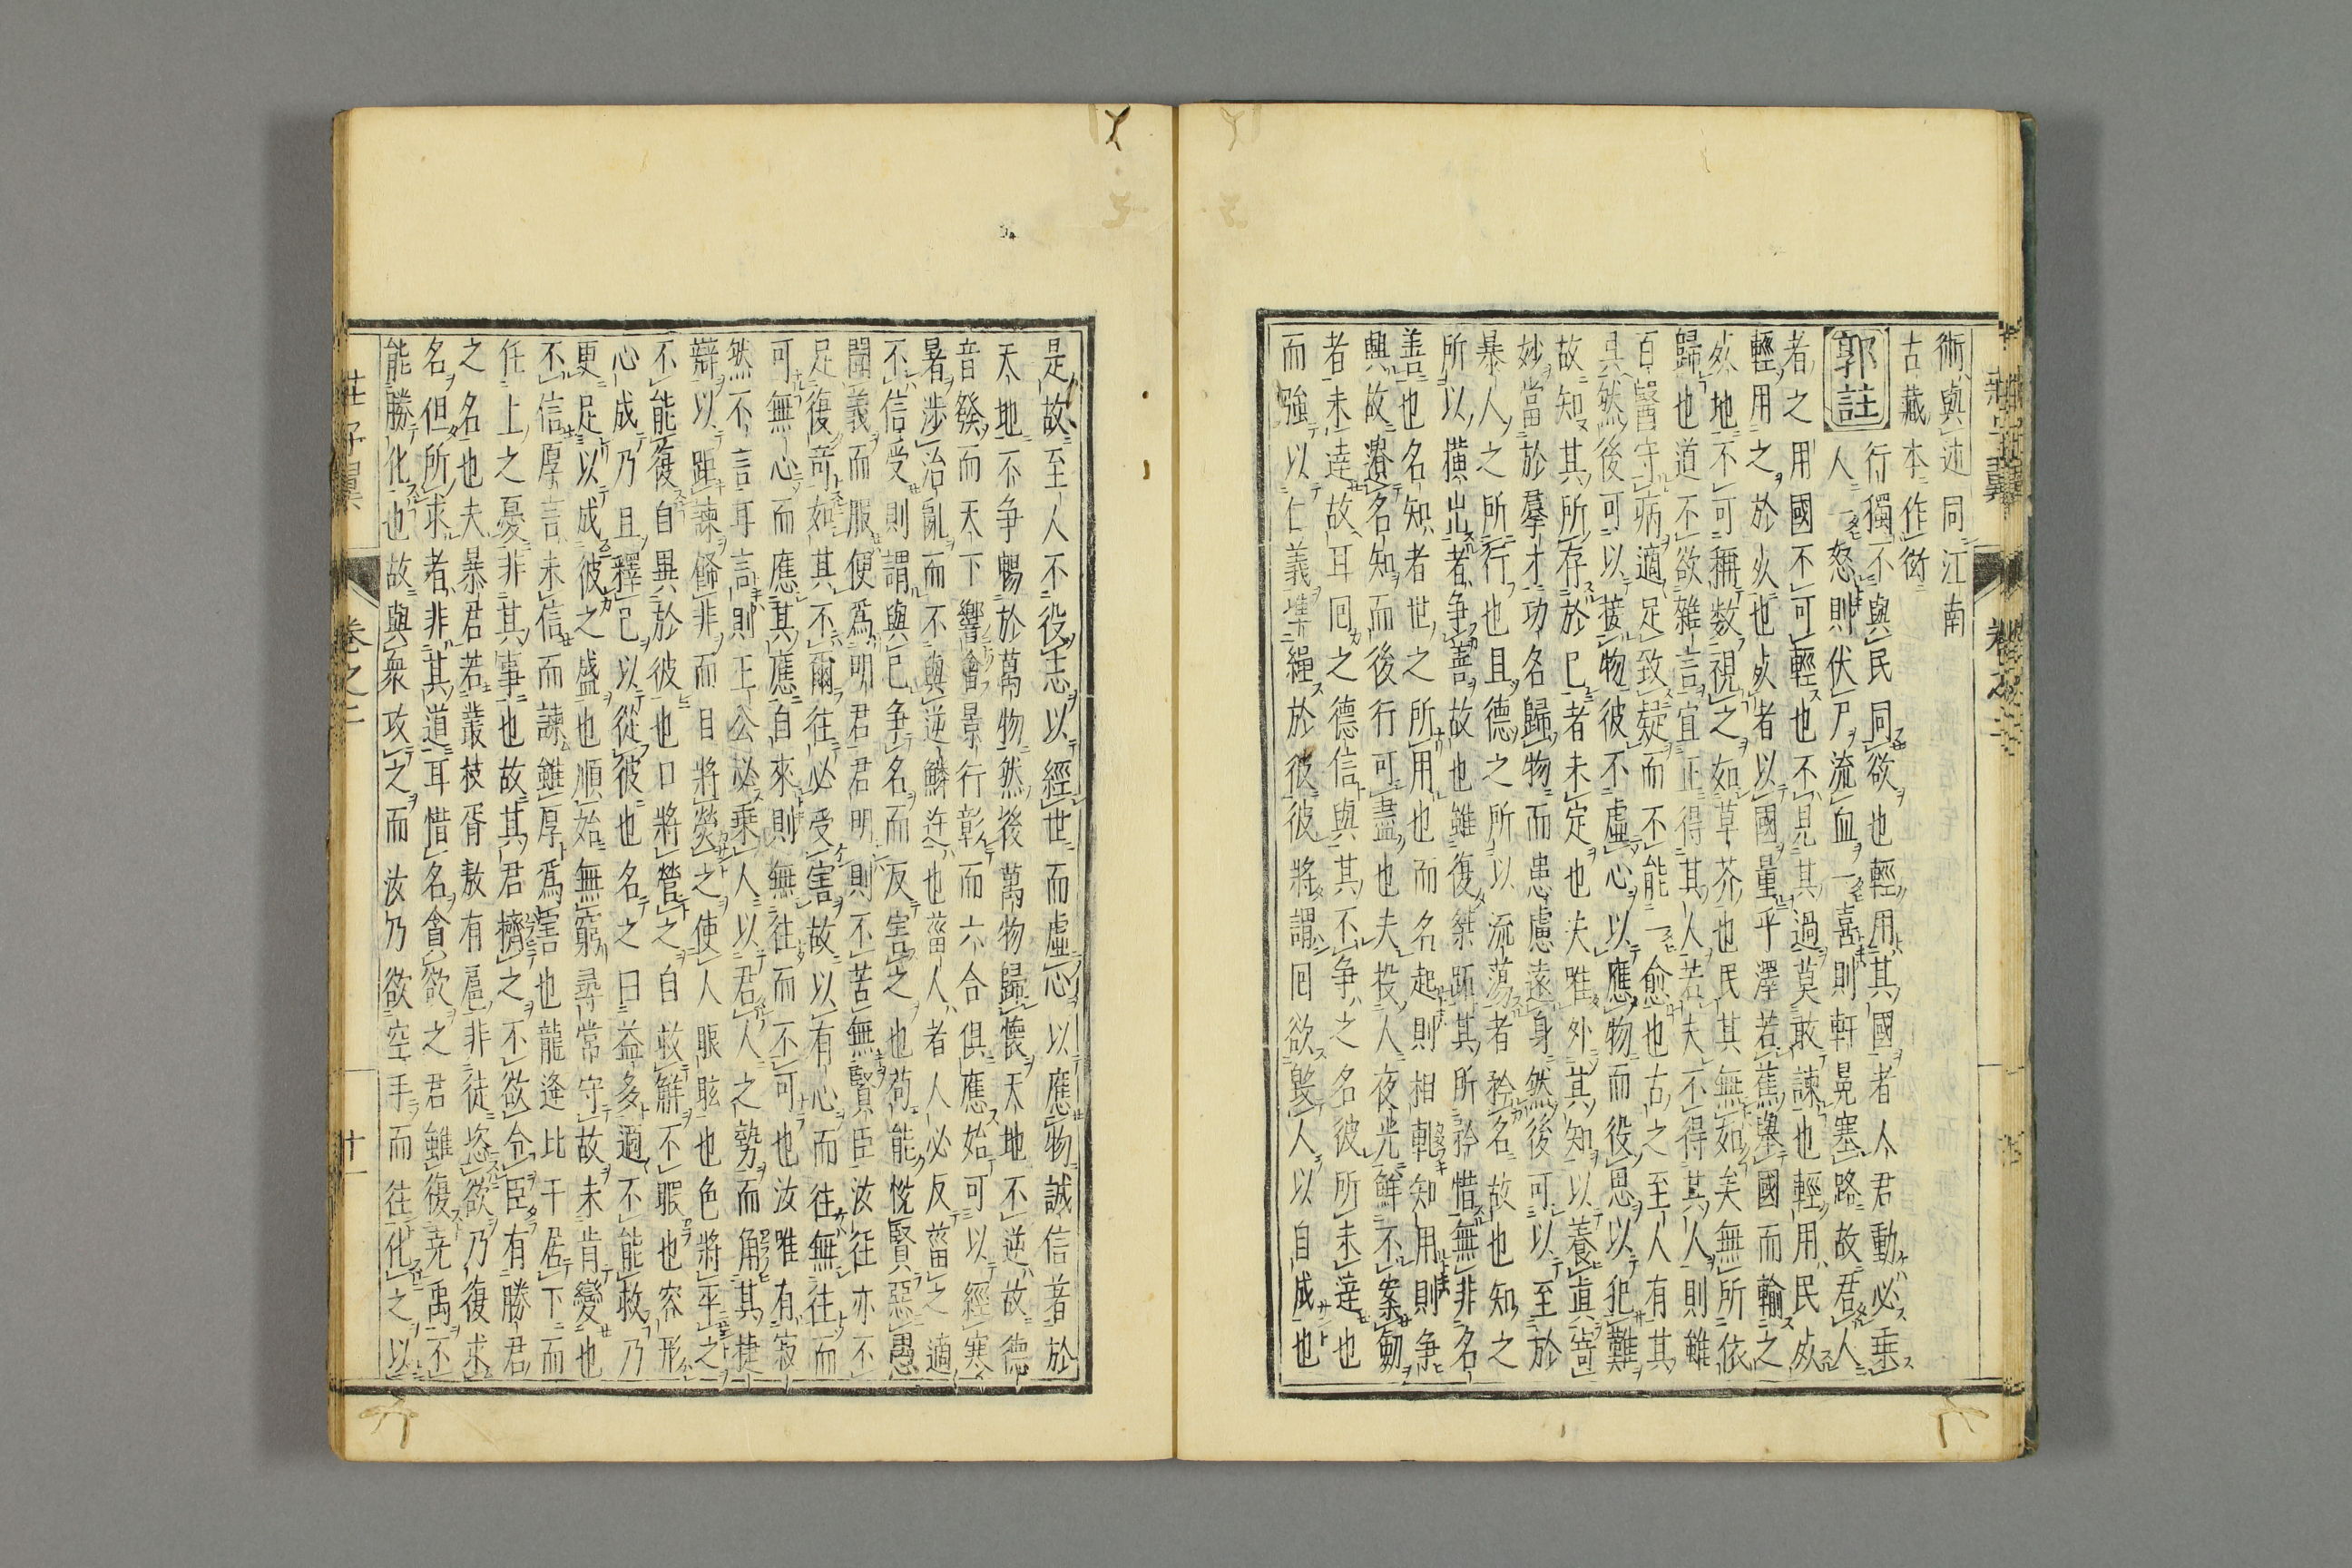 術與述同江南
古藏本作衒
郭註
行獨不與民同欲也輕用其國者人君動必乗
人一怒則伏尸流血一喜則軒冕塞路故君人
者之用國不可輕也不見其過莫敢諫也輕用民死
輕用之於死也死者以國量乎澤若蕉舉國而輸之
死地不可稱数視之如草芥也民其無如矣無所依
歸也道不欲雜言宜正得其人若夫不得其人則雖
百醫守病適足致疑而不能一愈也古之至人有其
具然後可以接物彼不虛心以應物而役思以犯難
故知其所存於已者未定也夫唯外其知以養眞寄
妙當於羣才功名歸物而患慮遠身然後可以至於
暴人之所行也且德之所以流蕩者矜名故也知之
所以橫出者爭善故也雖復桀跖其所矜惜無非名
善也名知者世之所用也而名起則相軋知用則爭
興故遺名知而後行可盡也夫投人夜光鮮不案劒
者未達故耳囘之德信與其不爭之名彼所未達也
而強以仁義準繩於彼彼將謂囘欲毀人以自成也
是故至人不役志以經世而虛心以應物誠信著於
天地不爭暢於萬物然後萬物歸懷天地不逆故德
音發而天下響會景行彰而六合俱應始可以經寒
暑涉治亂而不與逆鱗迕也菑人者人必反菑之適
不信受則謂與已爭名而反害之也苟能恱賢惡愚
聞義而服便爲明君君明則不苦無賢臣汝往亦不
足復奇如其不爾往必受害故以有心而往無往而
可無心而應其應自來則無往而不可也汝唯有寂
然不言耳言則王公必乗人以君人之勢而角其捷
辯以距諫飾非而目將熒之使人眼眩也色將平之
不能復自異於彼也口將營之自救解不暇也容形
心成乃且釋已以從彼也名之曰益多適不能救乃
更足以成彼之盛也順始無窮尋常守故未肯變也
不信厚言未信而諫雖厚爲害也龍逄比干居下而
任上之憂非其事也故其君擠之不欲令臣有勝君
之名也夫暴君若叢枝胥敖有扈非徒恣欲乃復求
名但所求者非其道耳惜名貪欲之君雖復尭禹不
能勝化也故與衆攻之而汝乃欲空手而徃化之以
莊子翼
卷之二
十一